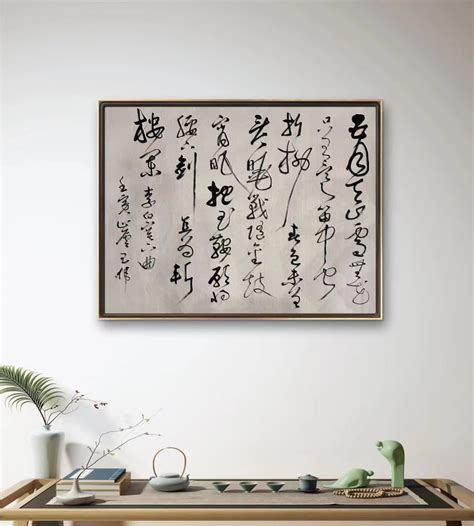 五月天山雪無花
只有寒笛中闻
折柳春色未曾
看晓戰随金鼓
宵眠抱玉鞍願将
腰下剑直为斩
楼兰李白塞下曲
壬寅王伟